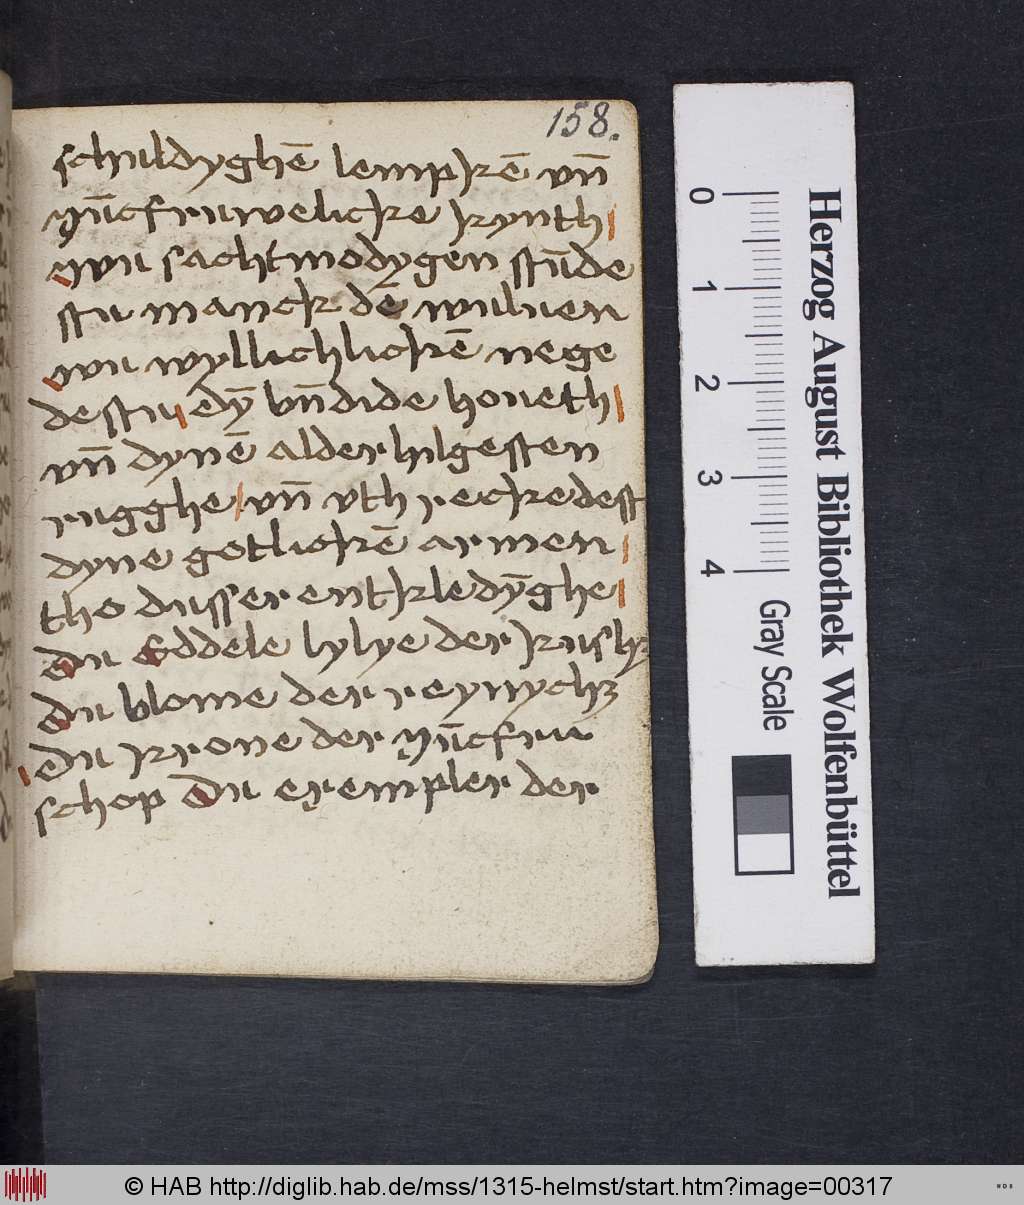 158.
schuldyghē lempkē vn̄
yūcfruwelicke kynth
ywu sachtmodygen stūde
stu manck dē wuluen
wu wyllichlickē nege
destu dȳ bn̄dide houeth
vn̄ dynē alder hilgesten
rugghe vn̄ vth reckedest
dyne gotlickē armen
tho dusser entkledȳghe
du Eddele lylye der kush
du blome der reynych
du krone der yūcfru
schop du exempler der
Herzog August Bibliothek Wolfenbüttel
0 1 2 3 4
Gray Scale
© HAB http://diglib.hab.de/mss/1315-helmst/start.htm?image=00317